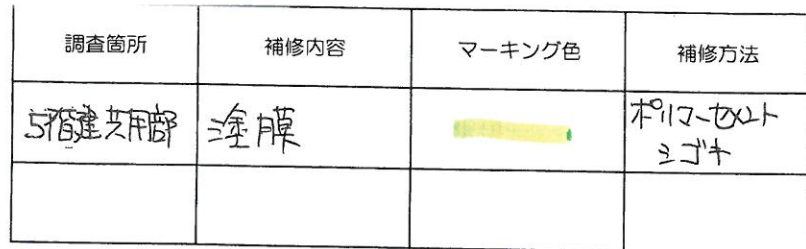 調査箇所 補修内容 マーキング色 補修方法
5階建共用部 塗膜 ポリマーセメント
シゴキ